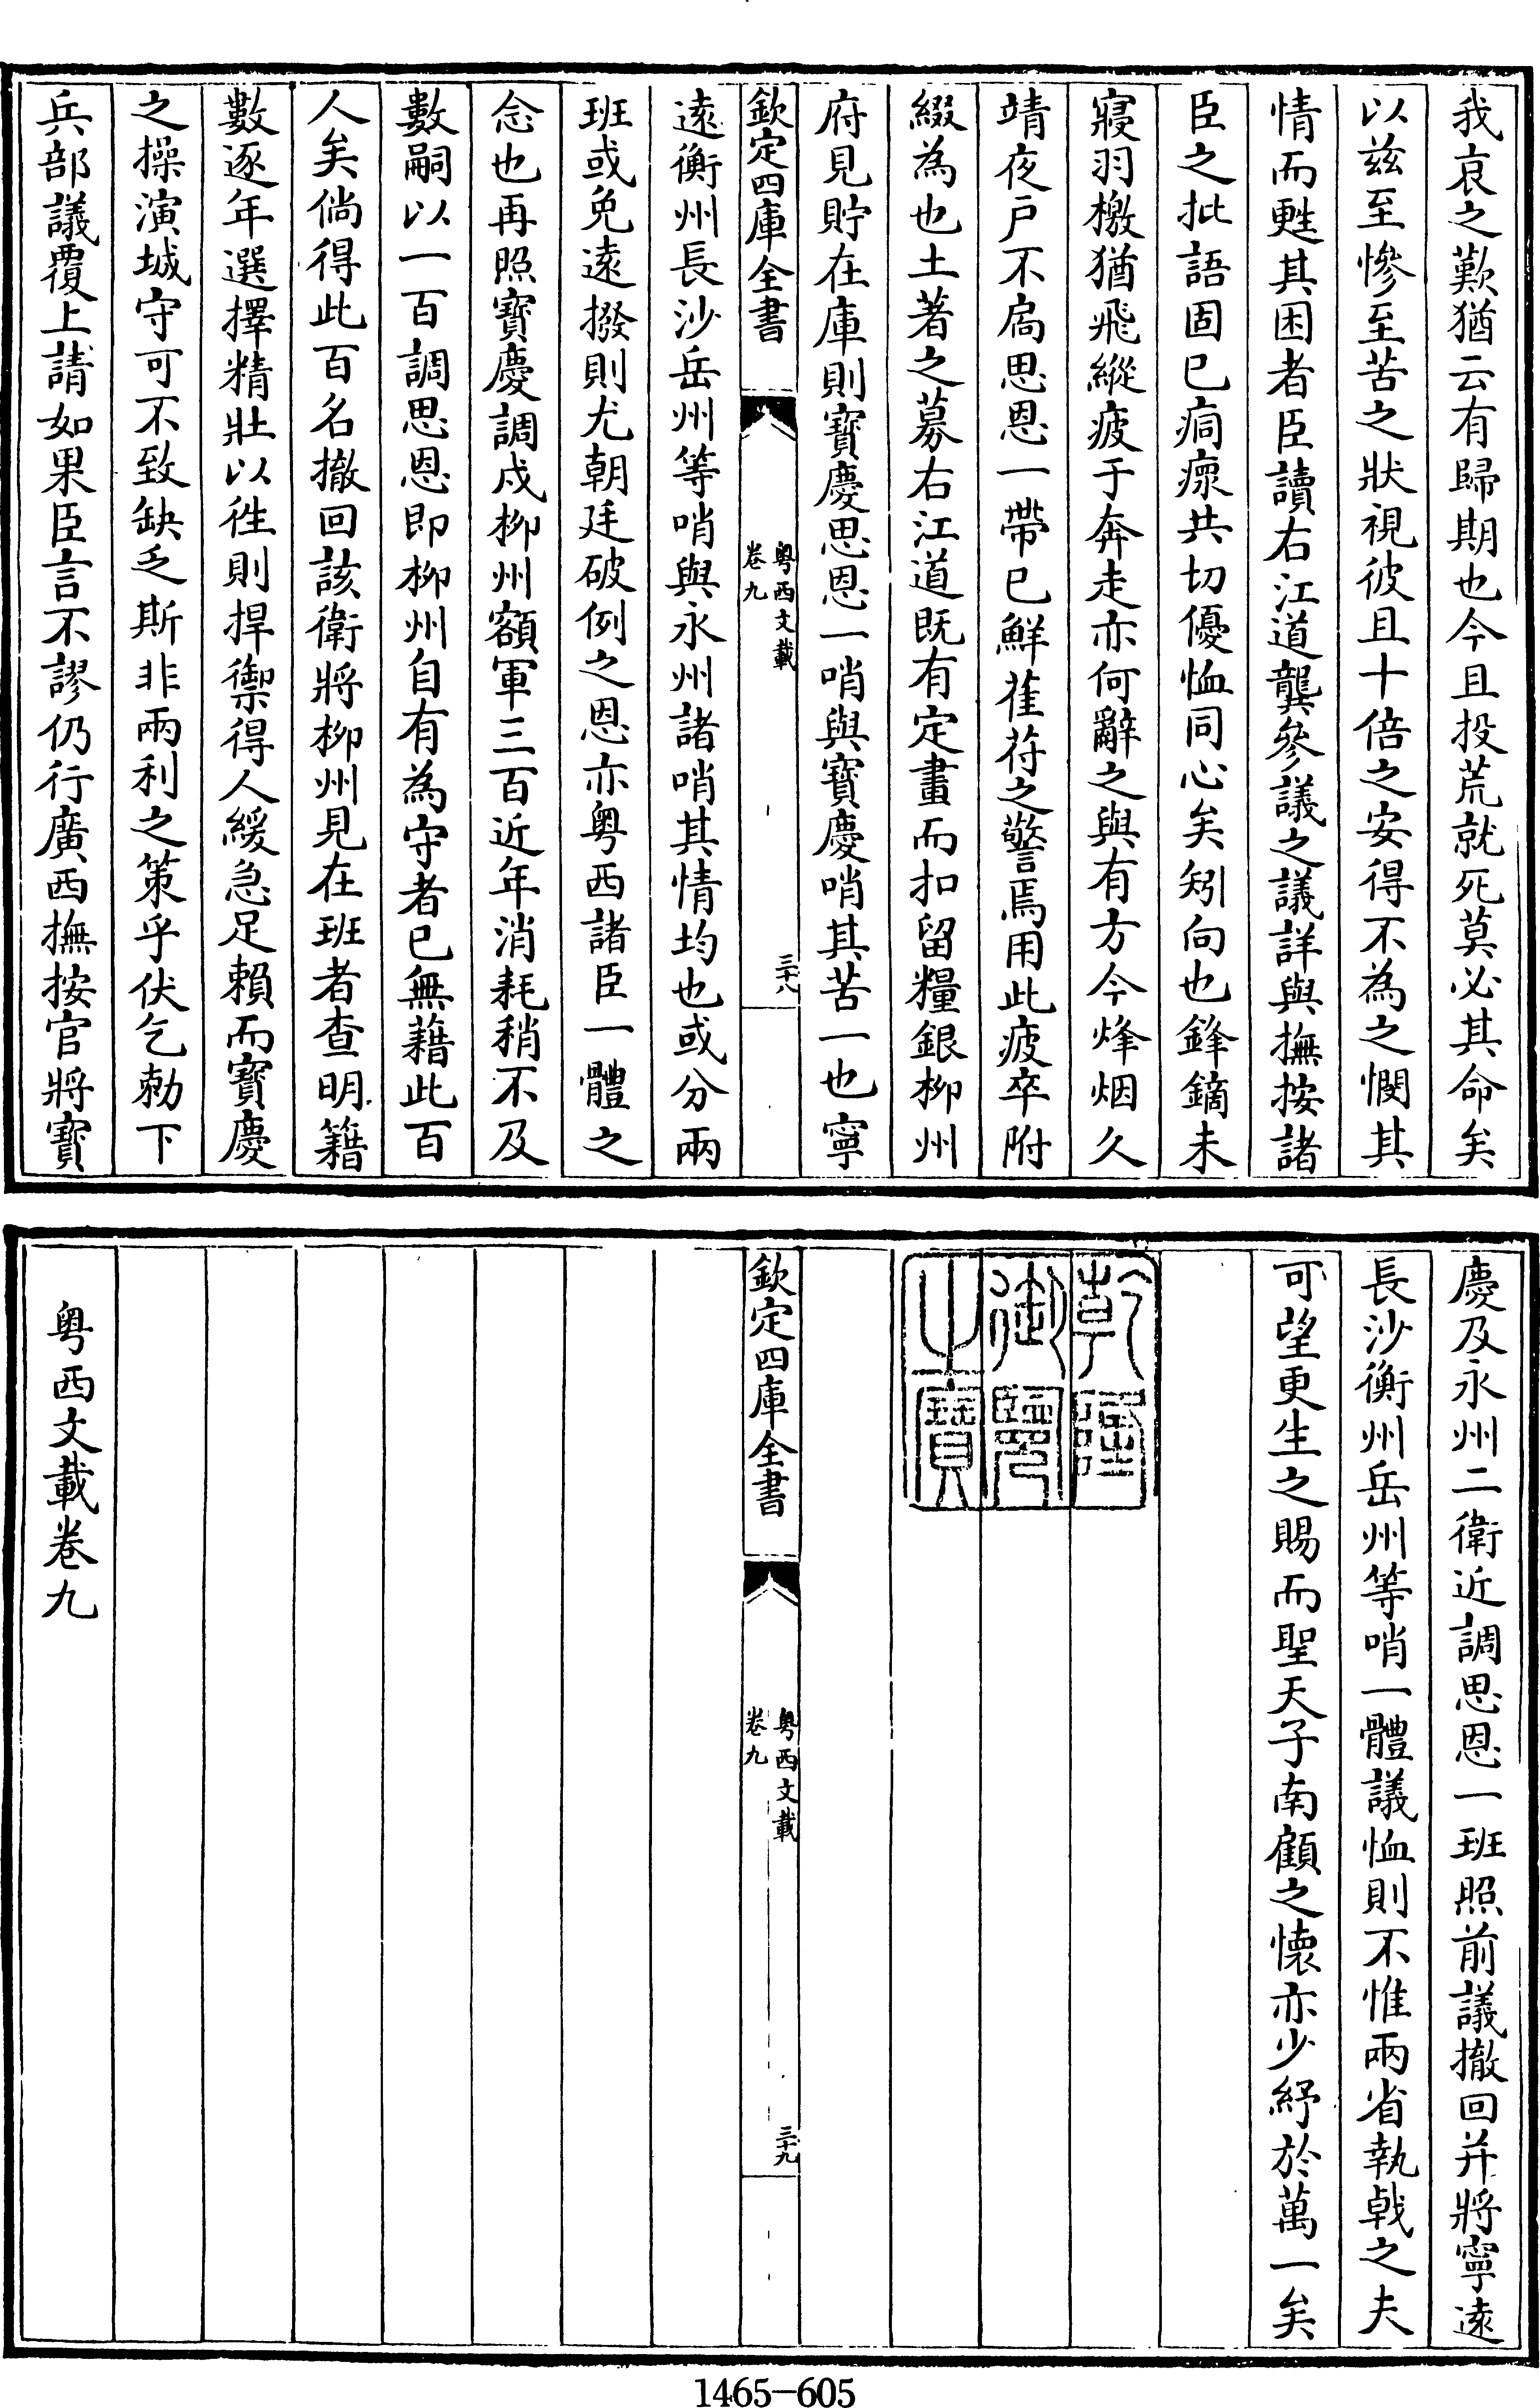 我哀之歎猶云有歸期也今且投荒就死莫必其命矣
以兹至慘至苦之狀視彼且十倍之安得不為之憫其
情而甦其困者臣讀右江道龔參議之議詳與撫按諸
臣之批語固已痌瘝共切優恤同心矣矧向也鋒鏑未
寢羽檄猶飛縱疲于奔走亦何辭之與有方今烽烟久
靖夜户不扄思恩一帶已鮮萑苻之警焉用此疲卒附
綴為也土著之募右江道既有定畫而扣留糧銀柳州
府見貯在庫則寳慶思恩一哨與寳慶哨其苦一也寧
欽定四庫全書
粤西文載
卷九
三十八
逺衡州長沙岳州等哨與永州諸哨其情均也或分兩
班或免逺撥則尤朝廷破例之恩亦粤西諸臣一體之
念也再照寳慶調戍柳州額軍三百近年消耗稍不及
數嗣以一百調思恩即柳州自有為守者已無藉此百
人矣倘得此百名撤回該衛將柳州見在班者查明籍
數逐年選擇精壯以徃則捍禦得人緩急足賴而寳慶
之操演城守可不致缺乏斯非兩利之策乎伏乞勅下
兵部議覆上請如果臣言不謬仍行廣西撫按官將寳
慶及永州二衛近調思恩一班照前議撤回并將寧逺
長沙衡州岳州等哨一體議恤則不惟兩省執戟之夫
可望更生之賜而聖天子南顧之懐亦少紓於萬一矣
乾隆
御覽
之寳
欽定四庫全書
粤西文載
卷九
三十九
粤西文載卷九
1465-605